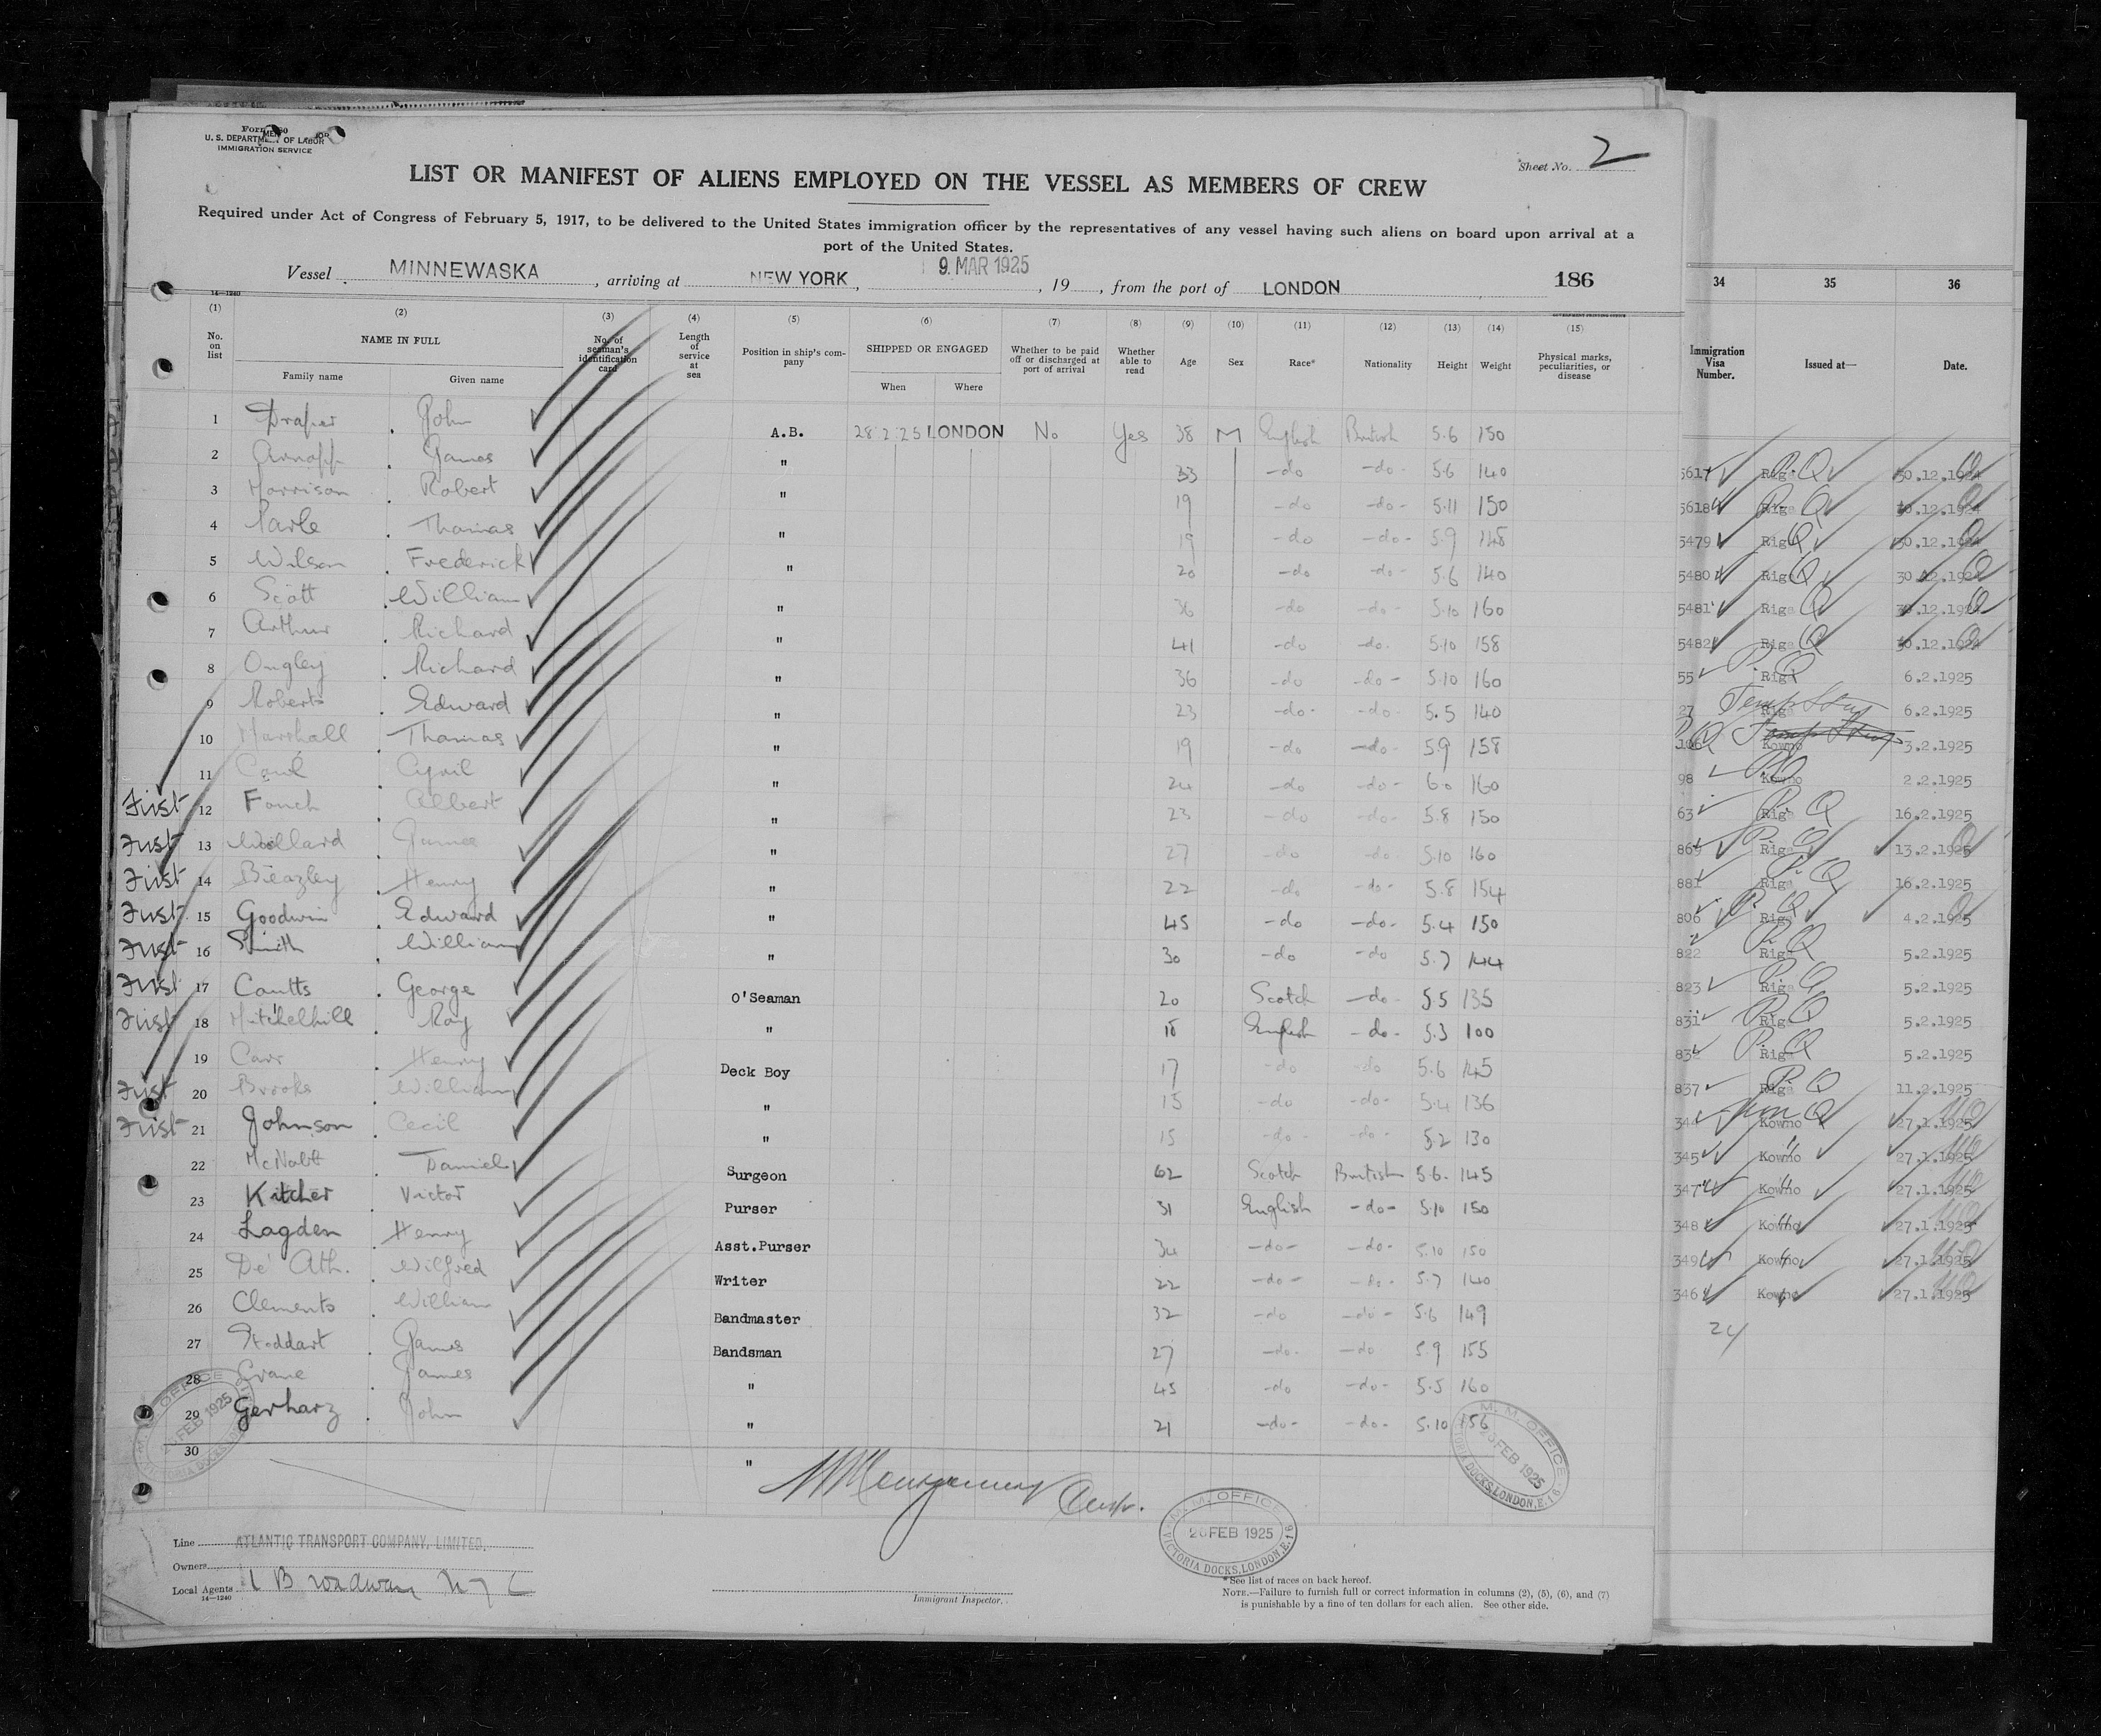 Form 680
U. S. DEPARTMENT OF LABOR
IMMIGRATION SERVICE
Sheet No. 2
LIST OR MANIFEST OF ALIENS EMPLOYED ON THE VESSEL AS MEMBERS OF CREW
Required under Act of Congress of February 5, 1917, to be delivered to the United States immigration officer by the representatives of any vessel having such aliens on board upon arrival at a
port of the United States.
Vessel MINNEWASKA, arriving at NEW YORK, 9 MAR 1925, 19 , from the port of LONDON 186
14—1240
(1) (2) (3) (4) (5) (6) (7) (8) (9) (10) (11) (12) (13) (14) (15) 34 35 36
No. on list NAME IN FULL Family name Given name No. of seaman's identification card Length of service at sea Position in ship's company SHIPPED OR ENGAGED When Where Whether to be paid off or discharged at port of arrival Whether able to read Age Sex Race* Nationality Height Weight Physical marks, peculiarities, or disease Immigration Visa Number. Issued at— Date.
1 Draper John A.B. 28 2 25 LONDON No Yes 38 M English British 5.6 150
2 James " 33 -do -do- 5.6 140 5617 Riga 30.12.1924
3 Harrison Robert " 19 -do -do- 5.11 150 5618 Riga 30.12.1924
4 Parle Thomas " 19 -do -do- 5.9 148 5479 Riga 30.12.1924
5 Wilson Frederick " 20 -do -do- 5.6 140 5480 Riga 30.12.1924
6 Scott William " 36 -do -do- 5.10 160 5481 Riga 30.12.1924
7 Arthur Richard " 41 -do -do- 5.10 158 5482 Riga 30.12.1924
8 Ongley Richard " 36 -do -do- 5.10 160 55 Riga 6.2.1925
9 Roberts Edward " 23 -do- -do- 5.5 140 27 Riga 6.2.1925
10 Marshall Thomas " 19 -do -do- 5.9 158 106 Kowno 3.2.1925
11 Cyril " 24 -do -do- 6.0 160 98 Kowno 2.2.1925
First 12 Albert " 23 -do -do- 5.8 150 63 Riga 16.2.1925
First 13 Willard James " 27 -do -do- 5.10 160 869 Riga 13.2.1925
First 14 Beazley Henry " 22 -do -do- 5.8 154 881 Riga 16.2.1925
First 15 Goodwin Edward " 45 -do -do- 5.4 150 806 Riga 4.2.1925
First 16 Smith William " 30 -do -do 5.7 144 822 Riga 5.2.1925
First 17 Coutts George O'Seaman 20 Scotch -do- 5.5 135 823 Riga 5.2.1925
First 18 Mitchelhill Roy " English -do- 5.3 100 831 Riga 5.2.1925
19 Carr Henry Deck Boy 17 -do -do 5.6 145 Riga 5.2.1925
First 20 Brooks William " 15 -do -do- 5.4 136 837 Riga 11.2.1925
First 21 Johnson Cecil " 15 -do- -do- 5.2 130 344 Kowno 27.1.1925
22 McNabb Daniel Surgeon 62 Scotch British 5.6. 145 345 Kowno 27.1.1925
23 Kitcher Victor Purser 31 English -do- 5.10 150 347 Kowno 27.1.1925
24 Lagden Henry Asst.Purser 34 -do- -do- 5.10 150 348 Kowno 27.1.1925
25 De' Ath. Wilfred Writer 22 -do- -do- 5.7 140 349 Kowno 27.1.1925
26 Clements William Bandmaster 32 -do -do- 5.6 149 346 Kowno 27.1.1925
27 Stoddart James Bandsman 27 -do- -do 5.9 155 24
28 Crane James " 45 -do -do- 5.5 160
29 Gerharz John " 21 -do- -do- 5.10 156
30 "
M. M. OFFICE 26 FEB 1925 VICTORIA DOCKS, LONDON, E.16
M. M. OFFICE 26 FEB 1925 VICTORIA DOCKS, LONDON, E.16
M. M. OFFICE 26 FEB 1925 VICTORIA DOCKS, LONDON, E.16
Line ATLANTIC TRANSPORT COMPANY, LIMITED.
Owners
Local Agents 1 Broadway N Y C
14—1240
Immigrant Inspector.
* See list of races on back hereof.
NOTE.—Failure to furnish full or correct information in columns (2), (5), (6), and (7)
is punishable by a fine of ten dollars for each alien. See other side.